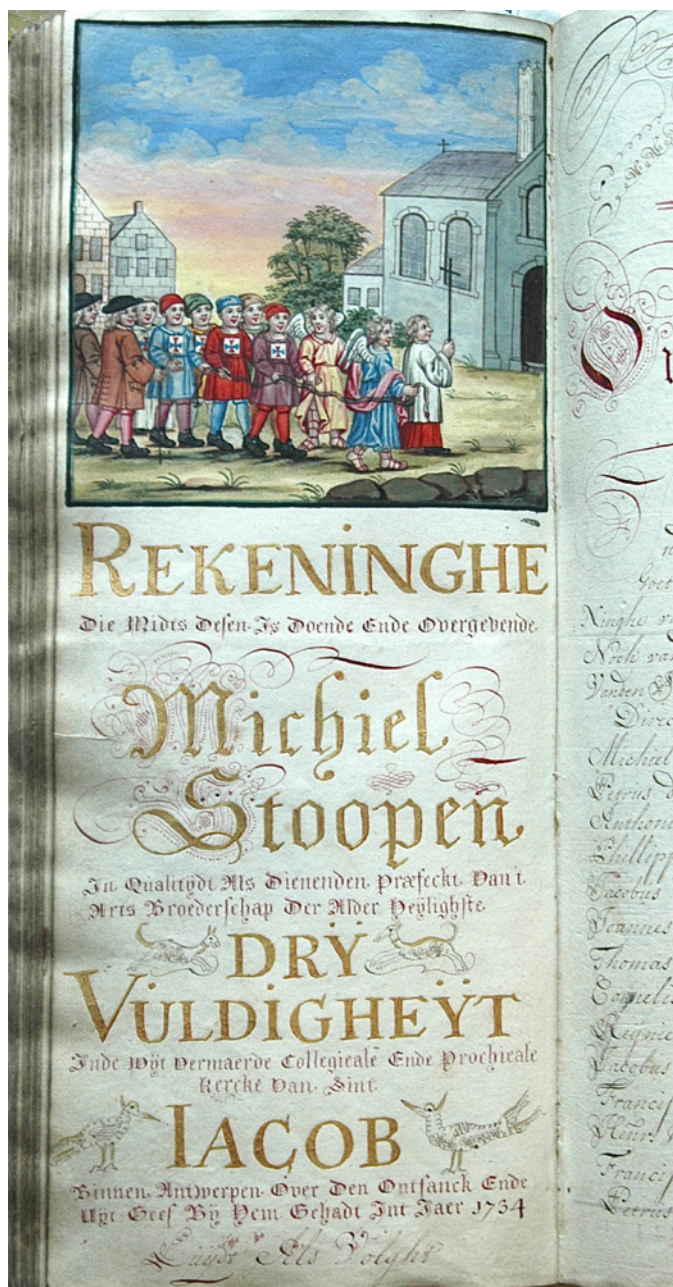 REKENINGHE
Die Midts Desen Is Doende Ende Overgevende
Michiel
Stoopen
In Qualitÿdt Als Dienenden Præfeckt Van t
Arts Broederschap Der Alder Heÿlighste
DRŸ
VULDIGHEŸT
Inde Wÿt Vermaerde Collegieale Ende Prochieale
Kercke Van Sint
IACOB
Binnen Antwerpen Over Den Ontfanck Ende
Uÿt Geef Bÿ Hem Gehadt Int Jaer 1734
Luÿdt Als Volght
Goet
Ninghe
Noch van
Vanden
Direc
Michiel
Petrus
Anthoni
Phillipp
Jacobus
Joannes
Thomas
Cornelis
Reynie
Jacobus
Francis
Henr
Francis
Petrus